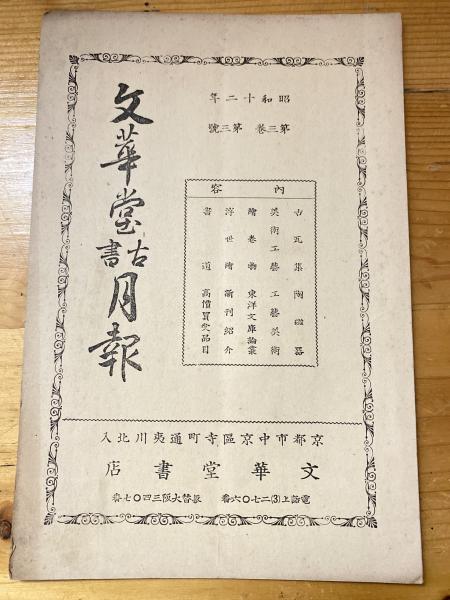 昭和十二年
第三卷 第三號
文華堂古書月報
內容
古瓦集陶磁器
美術工藝 工藝美術
繪卷物 東洋文庫論叢
浮世繪 新刊紹介
書道 高價買受品目
京都市中京區寺町通夷川北入
文華堂書店
電話上(3)二七〇六番 振替大阪三四〇七番